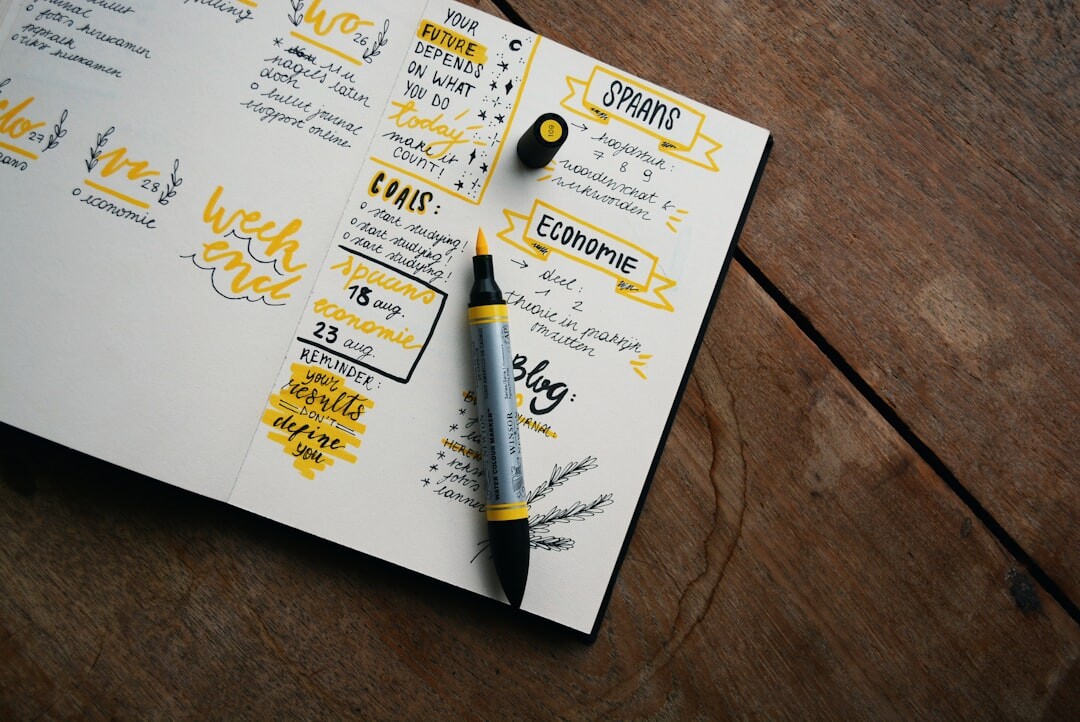 bullet
journal
foto's herexamen
herexamen
wo 26
nagels laten
doen
bullet journal
blogpost online
do 27
vr 28
economie
week
end
YOUR
FUTURE
DEPENDS
ON WHAT
YOU DO
today
make it
COUNT!
GOALS:
start studying!
start studying!
start studying!
spaans
18 aug.
economie
23 aug.
REMINDER:
your
results
DON'T
define
you
SPAANS
→ hoofdstuk:
7 8 9
woordenschat &
werkwoorden
ECONOMIE
→ deel:
1 2
theorie in praktijk
omzetten
Blog:
109
WATER COLOUR MARKER
WINSOR